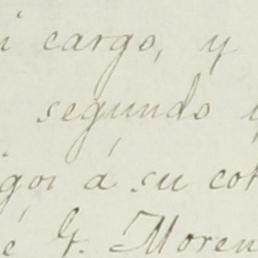 i cargo, y
segundo y
gos á su cot
é G. Moren